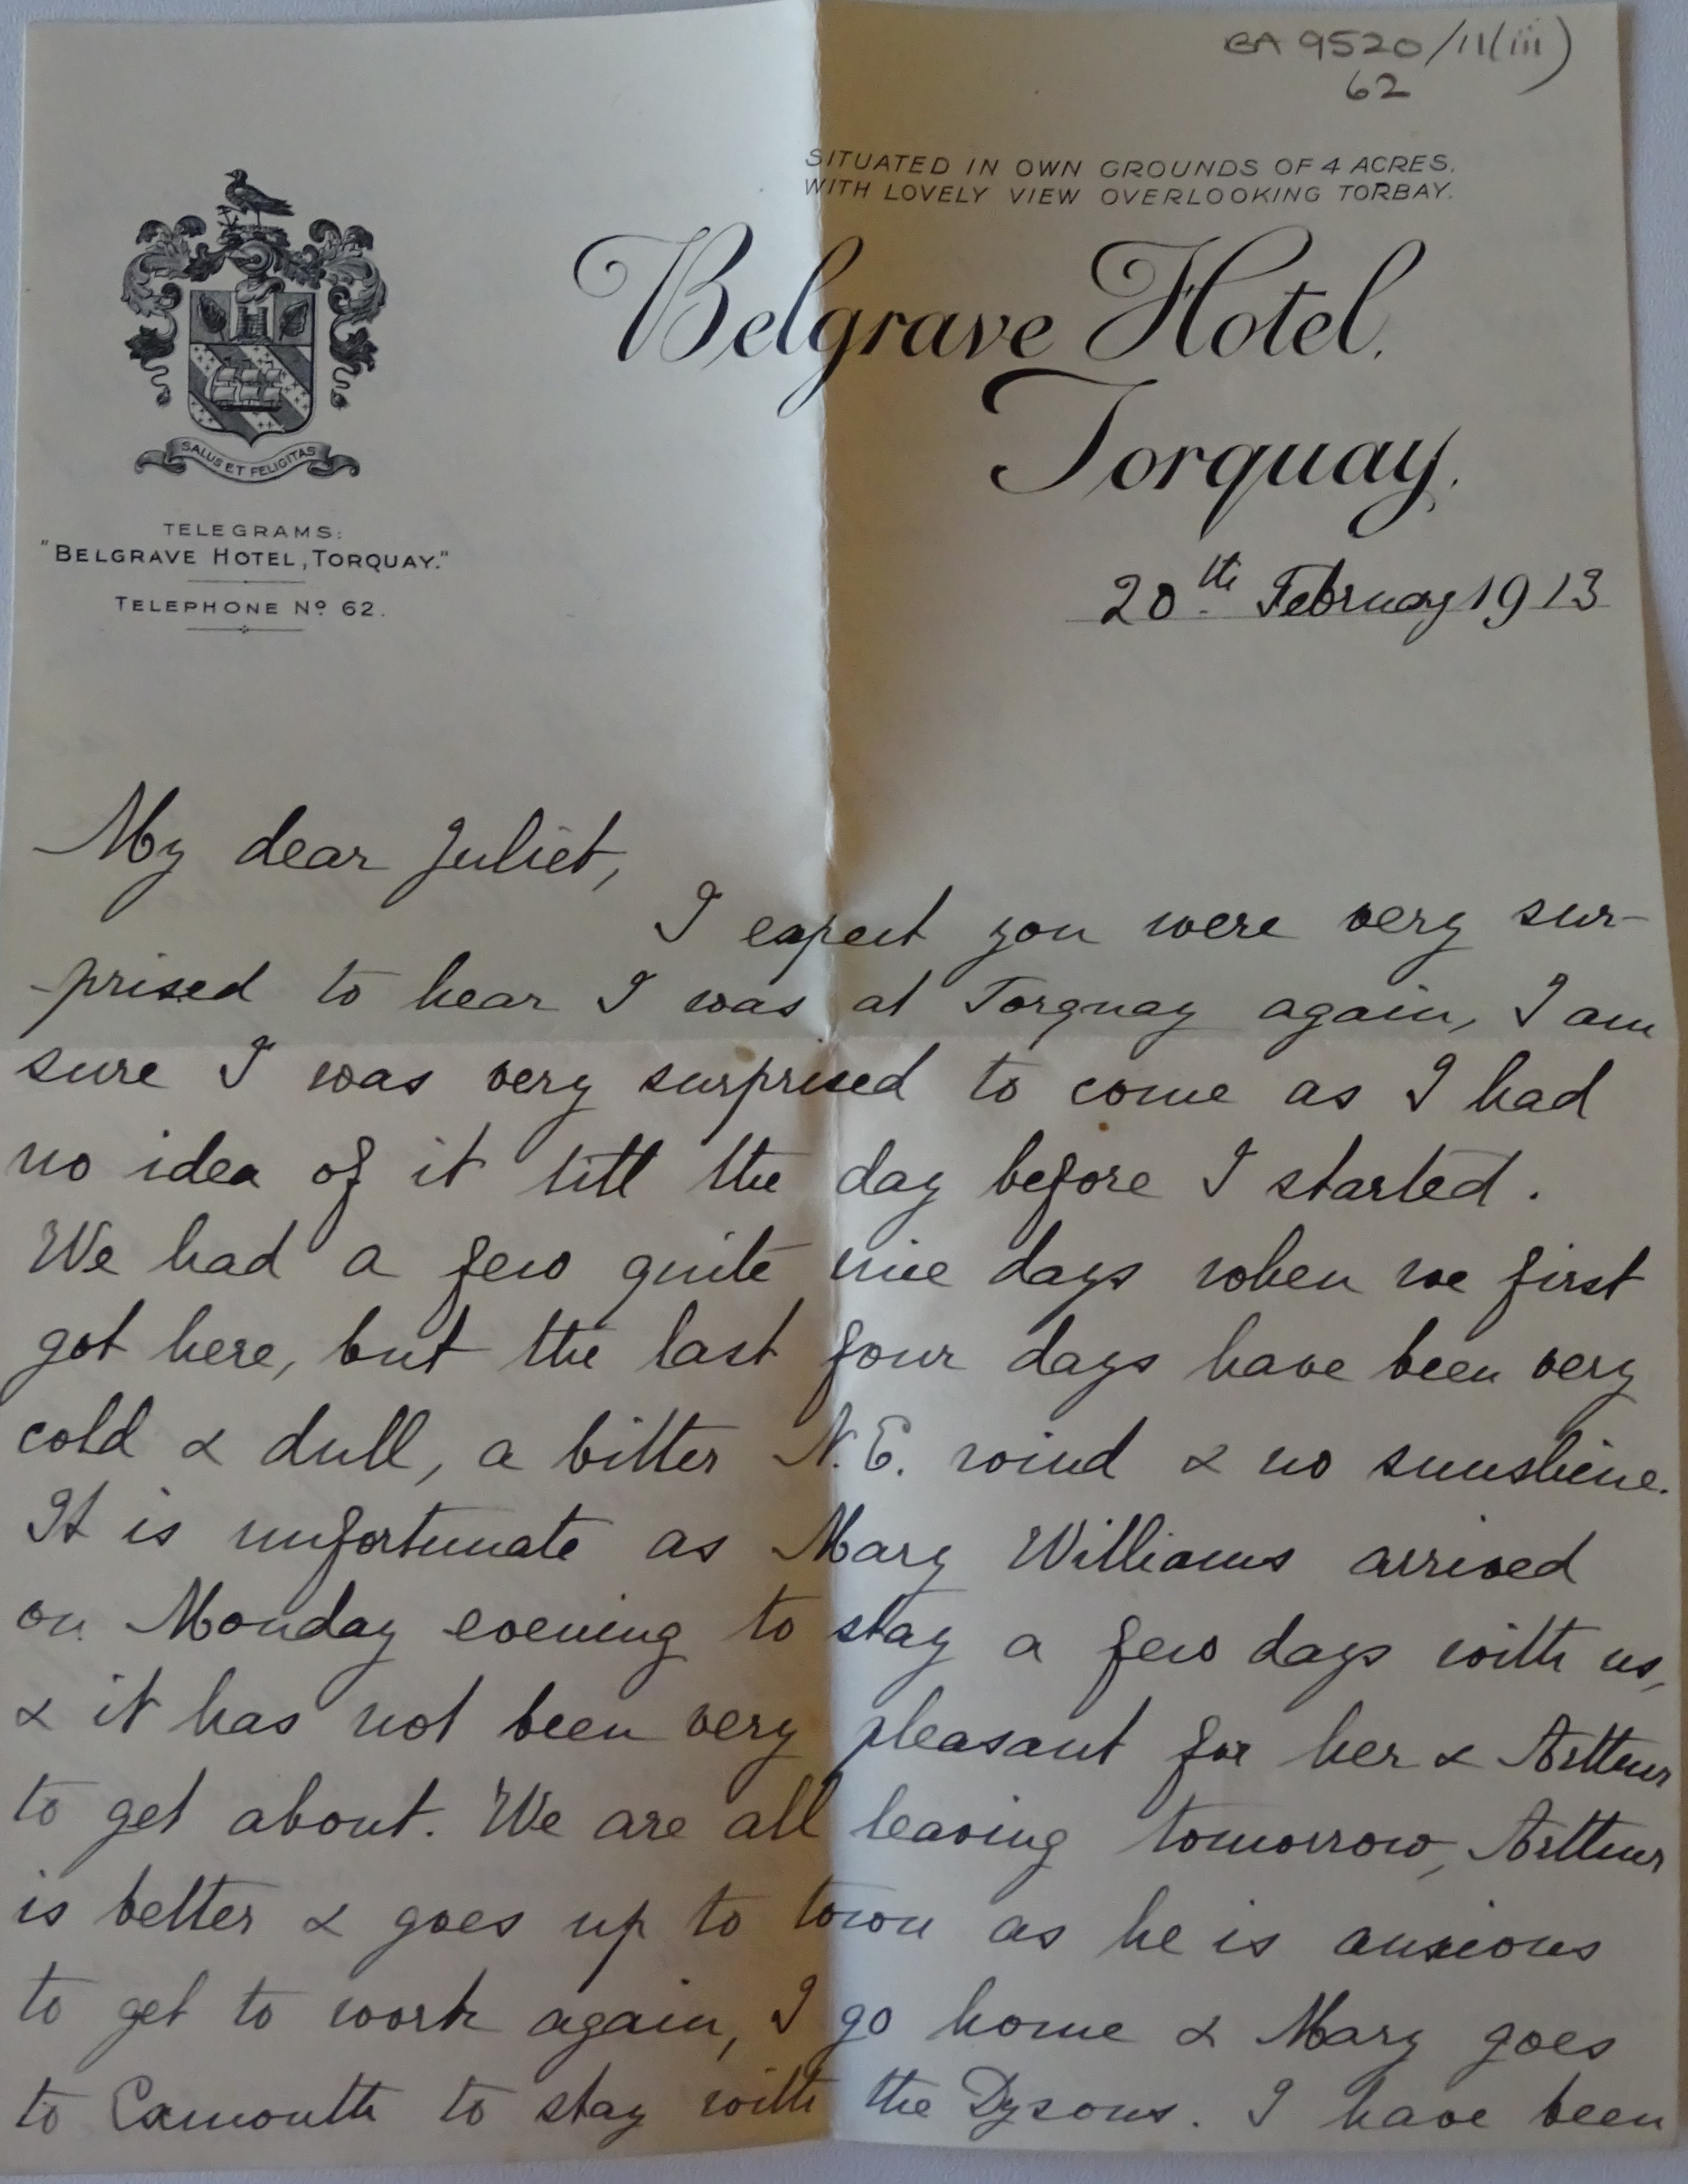 BA 9520/11(iii)
62
SITUATED IN OWN GROUNDS OF 4 ACRES.
WITH LOVELY VIEW OVERLOOKING TORBAY.
Belgrave Hotel,
Torquay,
SALUS ET FELICITAS
TELEGRAMS:
"BELGRAVE HOTEL, TORQUAY."
TELEPHONE Nº 62.
20th February 1913
My dear Juliet,
I expect you were very sur-
-prised to hear I was at Torquay again, I am
sure I was very surprised to come as I had
no idea of it till the day before I started.
We had a few quite nice days when we first
got here, but the last four days have been very
cold & dull, a bitter N.E. wind & no sunshine.
It is unfortunate as Mary Williams arrived
on Monday evening to stay a few days with us,
& it has not been very pleasant for her & Arthur
to get about. We are all leaving tomorrow, Arthur
is better & goes up to town as he is anxious
to get to work again, I go home & Mary goes
to Exmouth to stay with the Dysons. I have been